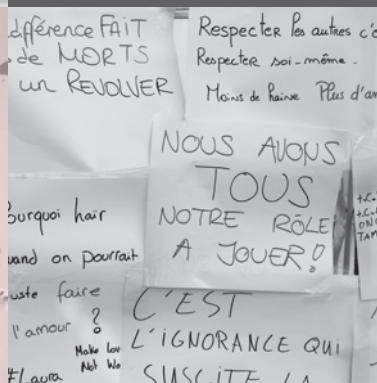 différence FAIT
de MORTS
un REVOLVER
Respecter les autres c'e
Respecter soi-même.
Moins de haine Plus d'am
NOUS AVONS
TOUS
NOTRE RÔLE
A JOUER!
ourquoi haïr
uand on pourrait
uste faire
l'amour ?
Make lov
Not Wa
#Laura
C'EST
L'IGNORANCE QUI
SUSCITE LA